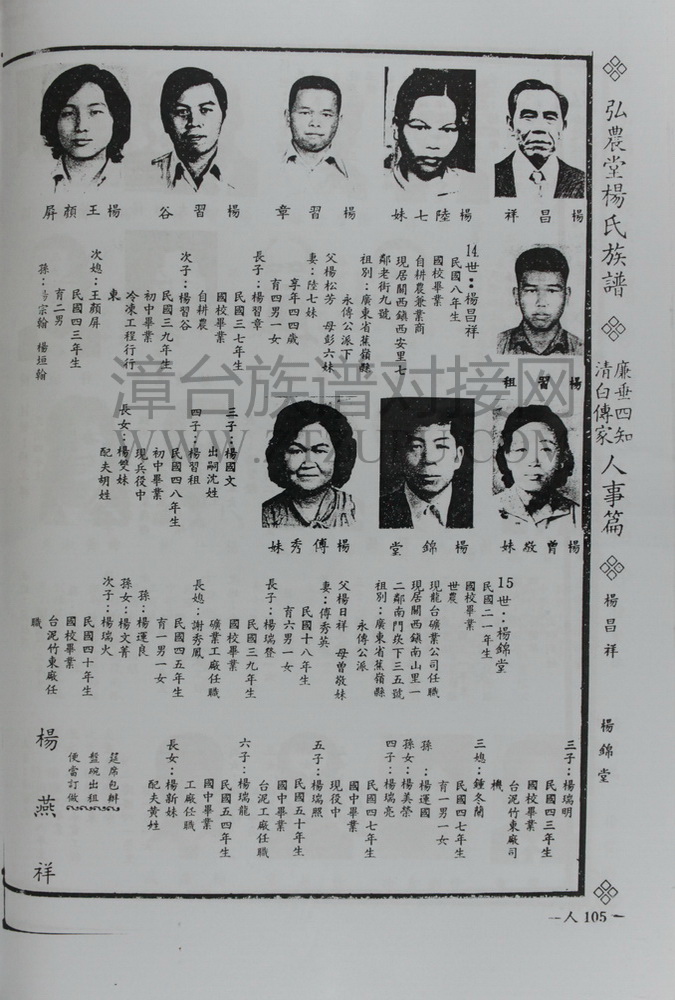 弘農堂楊氏族譜
廉垂四知
清白傳家
人事篇
楊昌祥
楊錦堂
楊昌祥
楊陸七妹
楊習章
楊習谷
楊王顏屏
楊習祖
14世：楊昌祥
民國八年生
國校畢業
自耕農兼業商
現居關西鎮西安里七
鄰老街九號
祖別：廣東省蕉嶺縣
永傳公派下
父楊松芳　母彭六妹
妻：陸七妹
享年四四歲
育四男一女
長子：楊習章
民國三七年生
國校畢業
自耕農
次子：楊習谷
民國三九年生
初中畢業
冷凍工程行行
東
次媳：王顏屏
民國四三年生
育二男
孫：楊宗翰　楊垣翰
三子：楊國文
出嗣沈姓
四子：楊習祖
民國四八年生
初中畢業
現兵役中
長女：楊雙妹
配夫胡姓
楊曾敬妹
楊錦堂
楊傅秀妹
15世：楊錦堂
民國二一年生
國校畢業
世農
現龍台礦業公司任職
現居關西鎮南山里一
二鄰南門崁下三五號
祖別：廣東省蕉嶺縣
永傳公派
父楊日祥　母曾敬妹
妻：傅秀英
民國十八年生
育六男一女
長子：楊瑞登
民國三九年生
國校畢業
礦業工廠任職
長媳：謝秀鳳
民國四五年生
育一男一女
孫：楊運良
孫女：楊文菁
次子：楊瑞火
民國四十年生
國校畢業
台泥竹東廠任
職
三子：楊瑞明
民國四三年生
國校畢業
台泥竹東廠司
機
三媳：鍾冬蘭
民國四七年生
育一男一女
孫：楊運國
孫女：楊美榮
四子：楊瑞亮
民國四七年生
國中畢業
現役中
五子：楊瑞照
民國五十年生
國中畢業
台泥工廠任職
六子：楊瑞龍
民國五四年生
國中畢業
工廠任職
長女：楊新妹
配夫黃姓
筵席包辦
盤碗出租
便當訂做
楊燕祥
一人105一
漳台族谱对接网